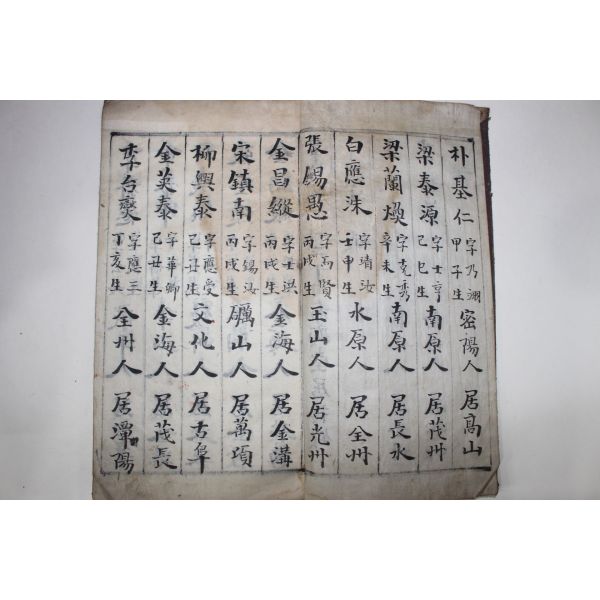 朴基仁 字乃翊 甲子生 密陽人 居高山
梁泰源 字士亨 己巳生 南原人 居茂州
梁蘭煥 字克秀 辛未生 南原人 居長水
白應洙 字靖汝 壬申生 水原人 居全州
張錫愚 字禹賢 丙戌生 玉山人 居光州
金昌縱 字士洪 丙戌生 金海人 居金溝
宋鎮南 字錫汝 丙戌生 礪山人 居萬項
柳興泰 字應受 己丑生 文化人 居古阜
金英泰 字華卿 己丑生 金海人 居茂長
李台夔 字應三 丁亥生 全州人 居潭陽